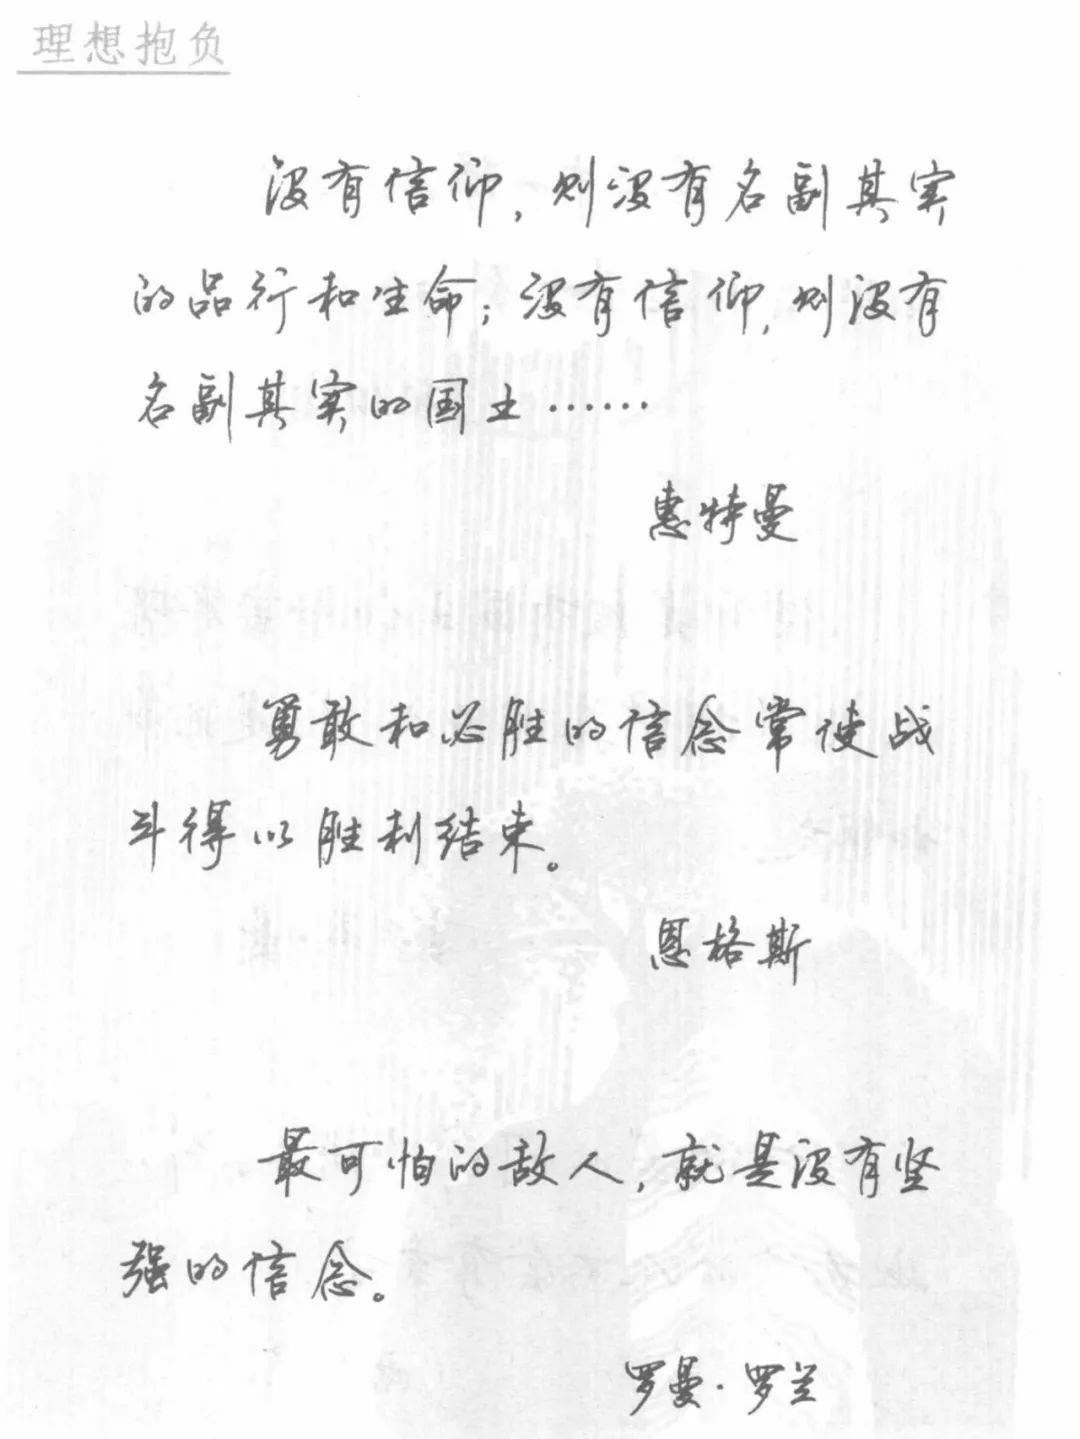 理想抱负
没有信仰，则没有名副其实
的品行和生命；没有信仰，则没有
名副其实的国土……
惠特曼
勇敢和必胜的信念常使战
斗得以胜利结束。
恩格斯
最可怕的敌人，就是没有坚
强的信念。
罗曼·罗兰